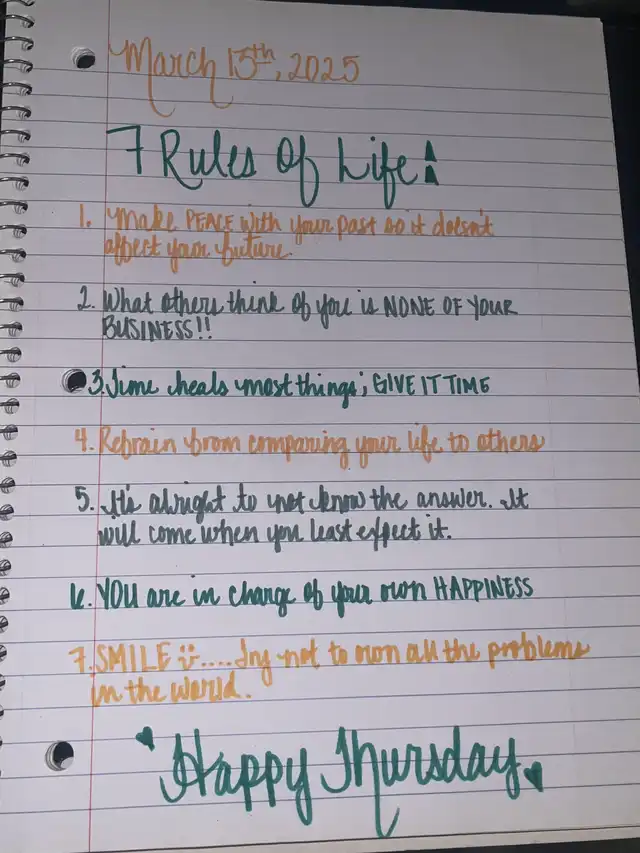 March 13th, 2025
7 Rules Of Life:
1. Make PEACE with your past so it doesn't
affect your future.
2. What others think of you is NONE OF YOUR
BUSINESS!!
3. Time heals most things; GIVE IT TIME
4. Refrain from comparing your life to others
5. It's alright to not know the answer. It
will come when you least expect it.
6. YOU are in charge of your own HAPPINESS
7. SMILE :) .... Try not to own all the problems
in the world.
Happy Thursday